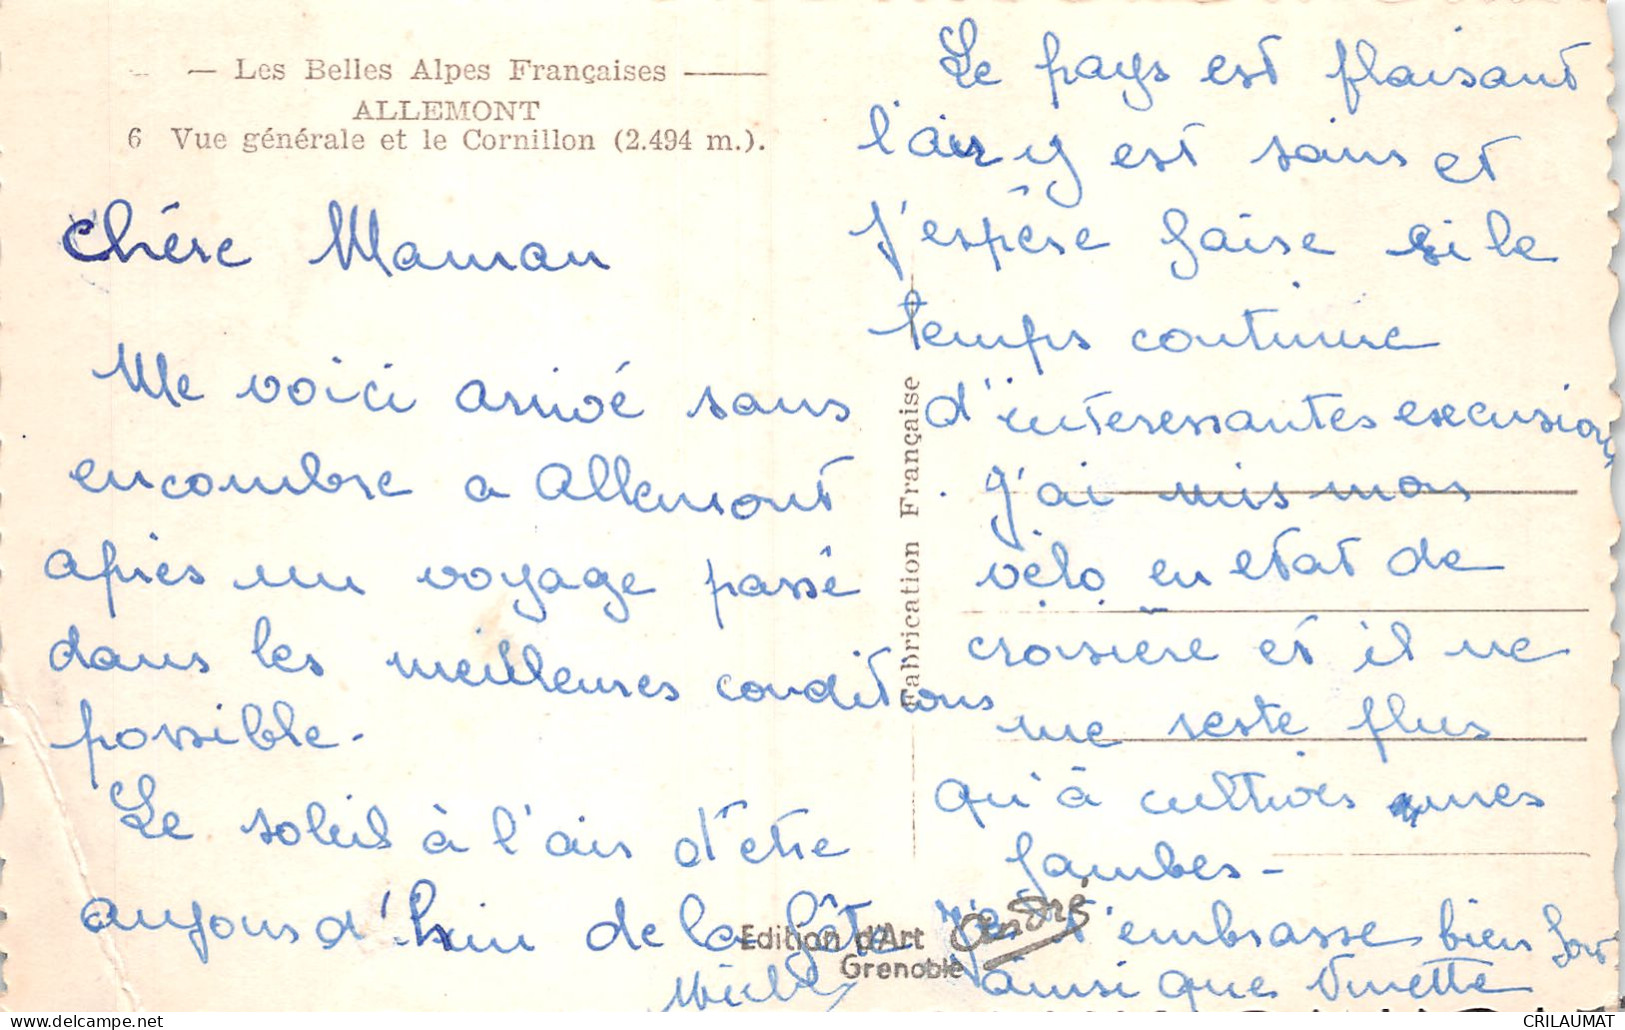 — Les Belles Alpes Françaises —
ALLEMONT
6 Vue générale et le Cornillon (2.494 m.).
Chére Maman
Me voici arrivé sans
encombre a Allemont
après un voyage passé
dans les meilleures conditions
possible.
Le soleil à l'air d'etre
aujourd'hui de la fête
Le pays est plaisant
l'air y est sains et
j'espère faire si le
temps continue
d'interessantes excursions
. J'ai mis mon
vélo en etat de
croisière et il ne
me reste plus
qu'à cultiver mes
jambes -
Je t'embrasse bien fort
ainsi que
Fabrication Française
Edition d'Art André
Grenoble
CRILAUMAT